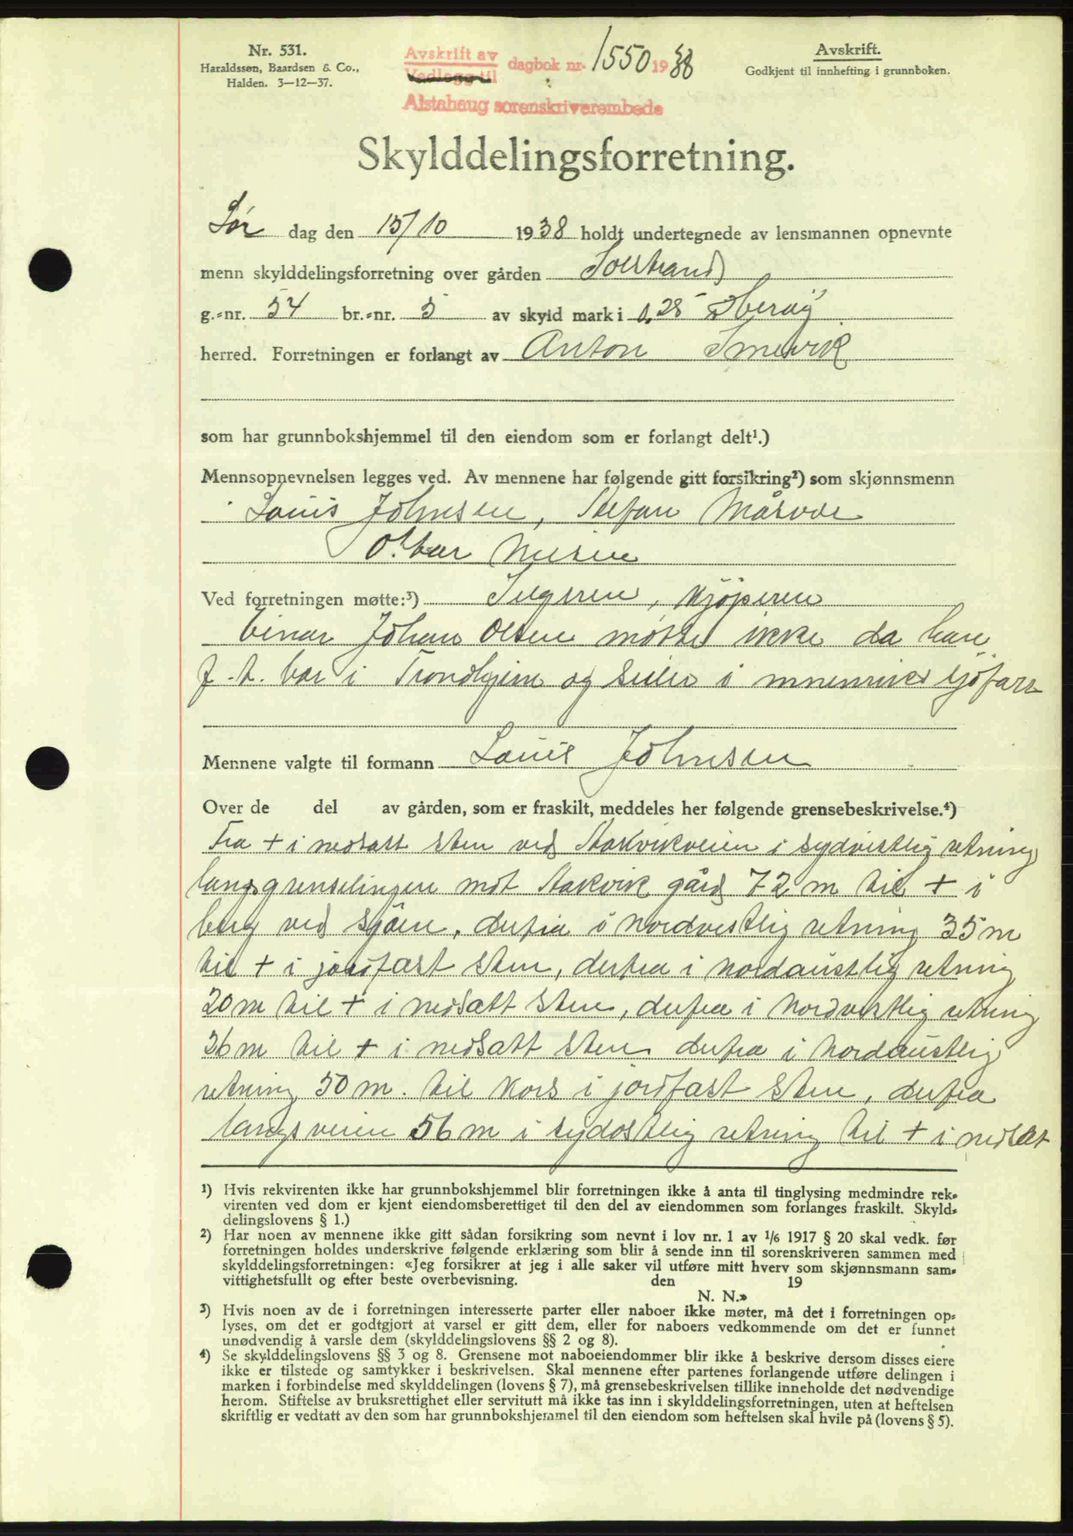 Nr. 531.
Haraldssøn, Baardsen & Co.,
Halden. 3—12—37.
Avskrift av
Vedlegg til
dagbok nr. 1550 1938
Alstahaug sorenskriverembede
Avskrift.
Godkjent til innhefting i grunnboken.
Skylddelingsforretning.
Lør dag den 15/10 1938 holdt undertegnede av lensmannen opnevnte
menn skylddelingsforretning over gården Solstrand
g.-nr. 54 br.-nr. 5 av skyld mark i 0,25 Herøy
herred. Forretningen er forlangt av Anton
som har grunnbokshjemmel til den eiendom som er forlangt delt¹.)
Mennsopnevnelsen legges ved. Av mennene har følgende gitt forsikring²) som skjønnsmenn
Louis Johnsen, Stefan
Ved forretningen møtte:³) Selgeren, Kjøperen
Einar Johan Olsen møtte ikke da han
f. t. bor i Trondhjem og seiler i innenriks sjøfart
Mennene valgte til formann Louis Johnsen
Over de del av gården, som er fraskilt, meddeles her følgende grensebeskrivelse.⁴)
Fra + i nedsatt sten ved Stokvikveien i sydvestlig retning
langs grenselinjen mot Stokvik gård 72 m til + i
berg ved sjøen, derfra i nordvestlig retning 35 m
til + i jordfast sten, derfra i nordaustlig retning
20 m til + i nedsatt sten, derfra i nordvestlig retning
26 m til + i nedsatt sten derfra i nordaustlig
retning 50 m. til kors i jordfast sten, derfra
langs veien 56 m i sydostlig retning til + i nedsatt
¹) Hvis rekvirenten ikke har grunnbokshjemmel blir forretningen ikke å anta til tinglysing medmindre rek-
virenten ved dom er kjent eiendomsberettiget til den del av eiendommen som forlanges fraskilt. (Skyld-
delingslovens § 1.)
²) Har noen av mennene ikke gitt sådan forsikring som nevnt i lov nr. 1 av ¹/₆ 1917 § 20 skal vedk. før
forretningen holdes underskrive følgende erklæring som blir å sende inn til sorenskriveren sammen med
skylddelingsforretningen: «Jeg forsikrer at jeg i alle saker vil utføre mitt hverv som skjønnsmann sam-
vittighetsfullt og efter beste overbevisning. den 19
N. N.»
³) Hvis noen av de i forretningen interesserte parter eller naboer ikke møter, må det i forretningen op-
lyses, om det er godtgjort at varsel er gitt dem, eller for naboers vedkommende om det er funnet
unødvendig å varsle dem (skylddelingslovens §§ 2 og 8).
⁴) Se skylddelingslovens §§ 3 og 8. Grensene mot naboeiendommer blir ikke å beskrive dersom disses eiere
ikke er tilstede og samtykker i beskrivelsen. Skal mennene efter partenes forlangende utføre delingen i
marken i forbindelse med skylddelingen (lovens § 7), må grensebeskrivelsen tillike inneholde det nødvendige
herom. Stiftelse av bruksrettighet eller servitutt må ikke tas inn i skylddelingsforretningen, uten at heftelsen
skriftlig er vedtatt av den som har grunnbokshjemmel til den eiendom som heftelsen skal hvile på (lovens § 5).